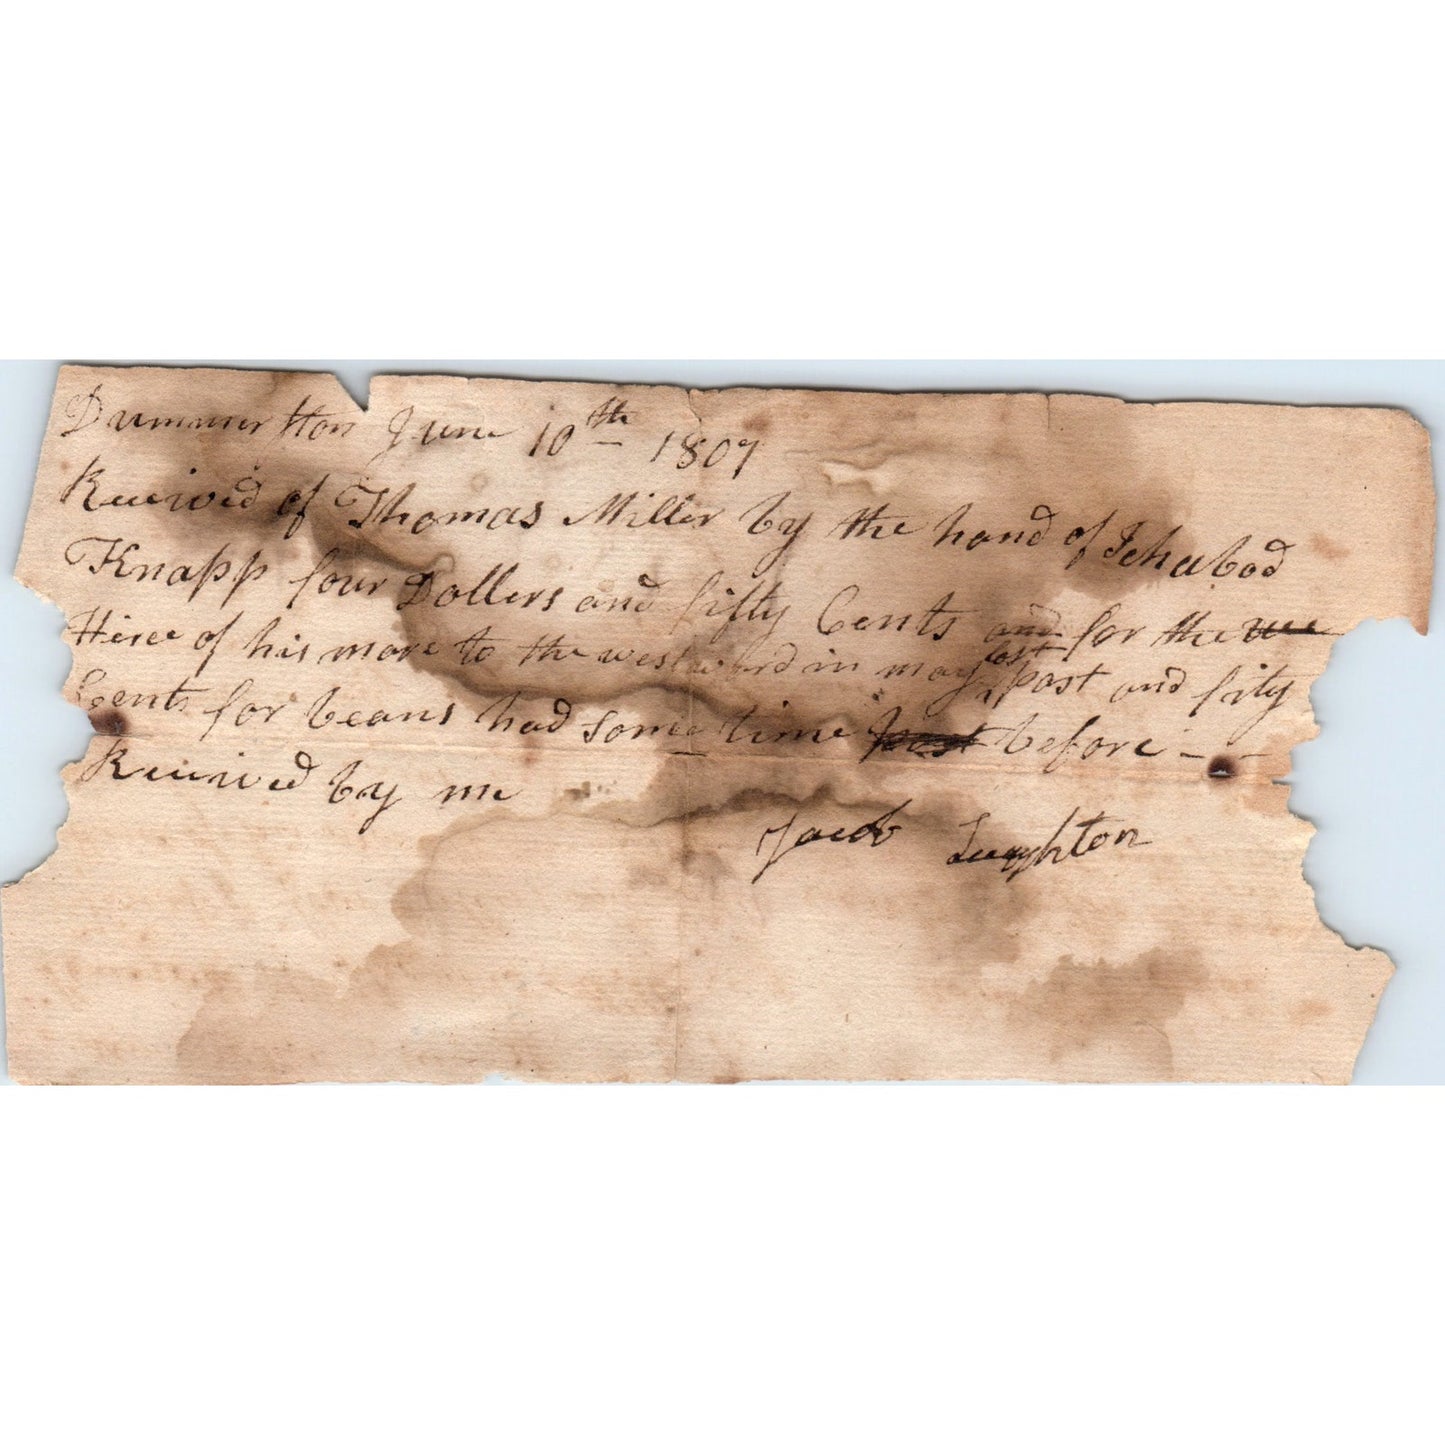 Dummerston June 10th 1807
Received of Thomas Miller by the hand of Ichabod
Knapp four Dollers and fifty Cents and for the use
Hiree of his mare to the westward in may last past and fifty
Cents for beans had some time past before - -
Received by me
Jacob Laughton